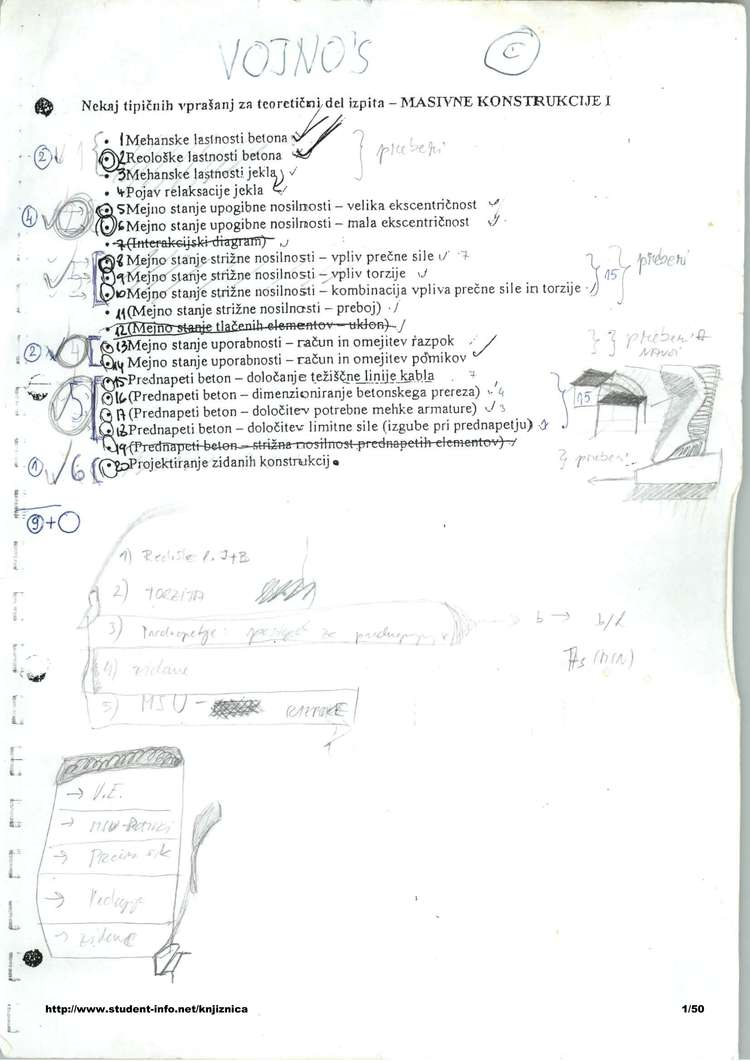 VOJNO'S C
Nekaj tipičnih vprašanj za teoretični del izpita – MASIVNE KONSTRUKCIJE I
• 1 Mehanske lastnosti betona
② 1 • 2 Reološke lastnosti betona preberi
• 3 Mehanske lastnosti jekla
• 4 Pojav relaksacije jekla
④ • 5 Mejno stanje upogibne nosilnosti – velika ekscentričnost
• 6 Mejno stanje upogibne nosilnosti – mala ekscentričnost
• 7 (Interakcijski diagram)
• 8 Mejno stanje strižne nosilnosti – vpliv prečne sile 7 preberi
• 9 Mejno stanje strižne nosilnosti – vpliv torzije 15
• 10 Mejno stanje strižne nosilnosti – kombinacija vpliva prečne sile in torzije
• 11 (Mejno stanje strižne nosilnosti – preboj)
• 12 (Mejno stanje tlačenih elementov – uklon)
② 4 • 13 Mejno stanje uporabnosti – račun in omejitev razpok preberi
• 14 Mejno stanje uporabnosti – račun in omejitev pomikov
• 15 Prednapeti beton – določanje težiščne linije kabla 7
5 • 16 (Prednapeti beton – dimenzioniranje betonskega prereza) 4 15
• 17 (Prednapeti beton – določitev potrebne mehke armature) 3
• 18 Prednapeti beton – določitev limitne sile (izgube pri prednapetju)
• 19 (Prednapeti beton – strižna nosilnost prednapetih elementov)
① 6 • 20 Projektiranje zidanih konstrukcij preberi
⑨ + O
1) Reološke l. J+B
2) TORZIJA
3) b → b/d
As (MSN)
4) zidane
5) MSU – RAZPOKE
→ V.E.
→ MSU-
→ Prečna sila
→
→ zidane
http://www.student-info.net/knjiznica 1/50